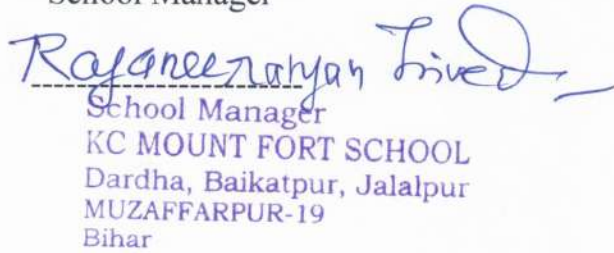 School Manager
Rajaneenarayan Trivedi
School Manager
KC MOUNT FORT SCHOOL
Dardha, Baikatpur, Jalalpur
MUZAFFARPUR-19
Bihar